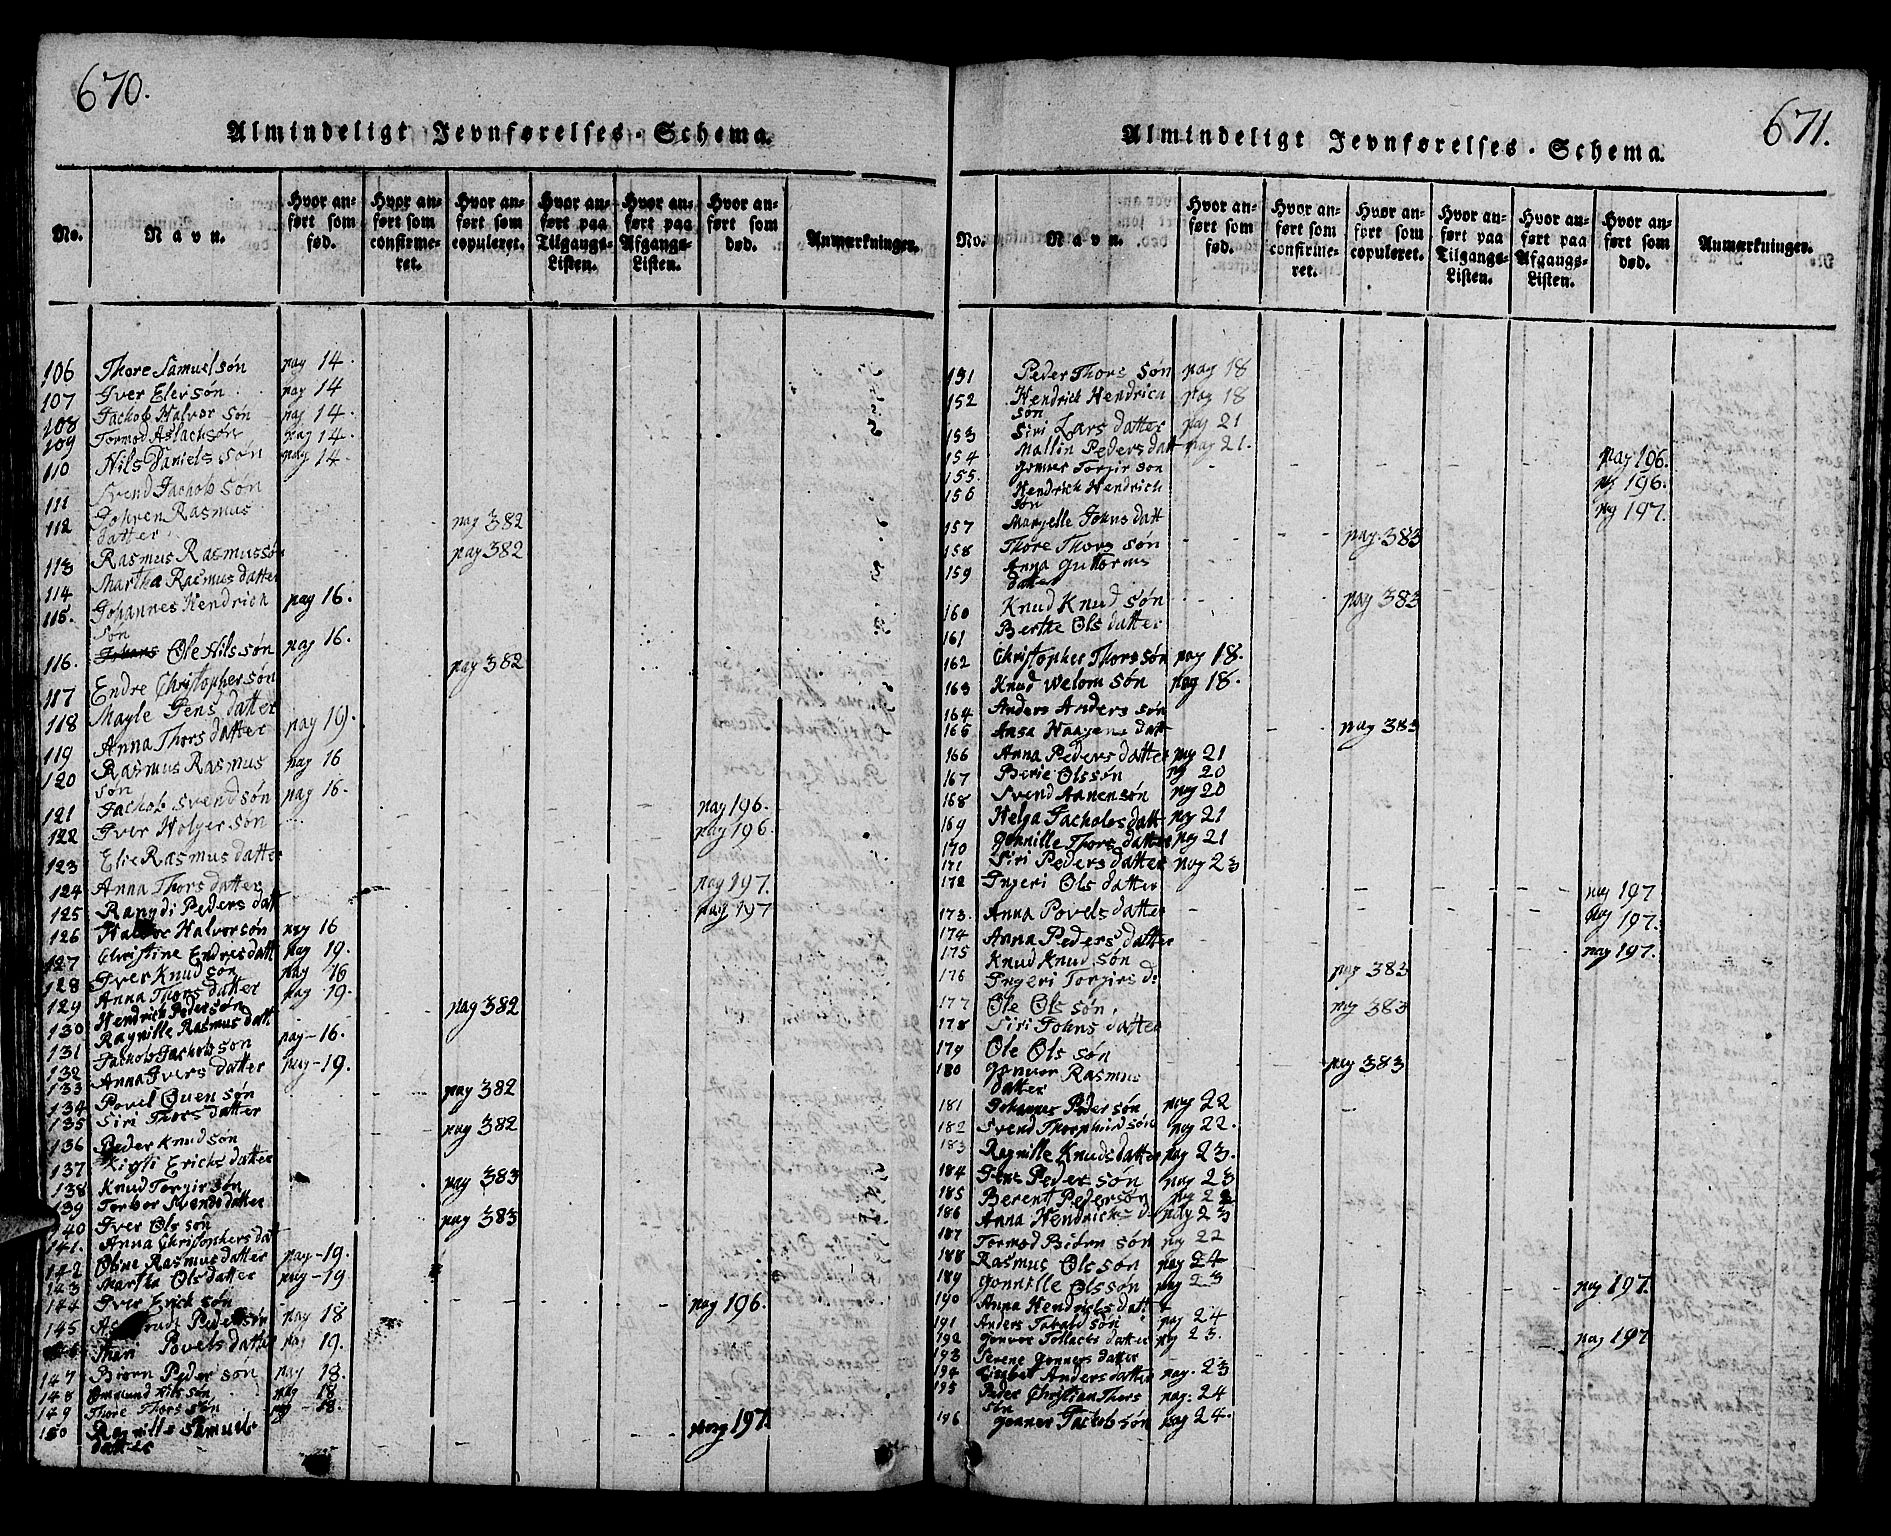 670.
Almindeligt Jevnførelses-Schema.
No. Navn. Hvor anført som fød. Hvor anført som confirmeret. Hvor anført som copuleret. Hvor anført paa Tilgangs-Listen. Hvor anført paa Afgangs-Listen. Hvor anført som død. Anmærkninger.
106 Thore Samuelsøn pag 14.
107 Iver Elersøn pag 14
108 Jachob Halvorsøn pag 14.
109 Tormod Aslachsøn pag 14.
110 Nils Danielssøn pag 14.
111 Svend Jachobsøn
112 Gohren Rasmus datter pag 382
113 Rasmus Rasmussøn pag 382
114 Martha Rasmusdatter
115. Johannes Hendrich søn pag 16.
116. Ole Nilssøn pag 16.
117 Endre Christophersøn pag 382
118 Mayle Jensdatter
119 Anna Thorsdatter pag 19.
120 Rasmus Rasmus søn pag 16
121 Jachob Svendsøn pag 16.
122 Iver Holgersøn pag 196.
123 Elie Rasmusdatter pag 196
124 Anna Thorsdatter pag 197.
125 Rangdi Pedersdatt pag 197
126 Halvor Halvorsøn pag 16
127 Christine Endresdatt pag 19.
128 Iver Knudsøn pag 16
129 Anna Thorsdatter pag 19.
130 Hendrich Pedersøn pag 382
131 Ragnille Rasmusdatt
132 Jachob Jachobsøn pag-16.
133 Anna Iversdatter pag-19.
134 Povel Ouensøn pag 382
135 Siri Thorsdatter
136 Peder Knudsøn pag 382
137 Kirsti Erichsdatter
138 Knud Torgirsøn pag 383
139 Torbor Svendsdatter
140 Iver Olssøn pag 383
141. Anna Christophersdat
142 Oline Rasmusdatter pag-19.
143 Martha Olsdatter pag-19
144 Iver Erichsøn pag 196.
145 Pedersøn pag 18
Povelsdatter pag 19.
147 Biørn Pedersøn pag 18.
148 Omund Nilssøn pag 18
149 Thore Thorssøn pag 18.
150 Ragnille Samuels datter pag 197.
671.
Almindeligt Jevnførelses-Schema.
No. Navn. Hvor anført som fød. Hvor anført som confirmeret. Hvor anført som copuleret. Hvor anført paa Tilgangs-Listen. Hvor anført paa Afgangs-Listen. Hvor anført som død. Anmærkninger.
151 Peder Thorssøn pag 18
152 Hendrich Hendrich søn pag 18
153 Siri Larsdatter pag 21
154 Mallin Pedersdatt pag 21.
155. Gonner Torgirsøn pag 196.
156 Hendrich Hendrich søn pag 196.
157 Margelle Johnsdatt pag 197.
158 Thore Thorssøn pag. 383
159 Anna Guttorms datter
160 Knud Knudsøn pag 383
161 Berthe Olsdatter
162 Christopher Thorssøn pag 18.
163 Knud Welomsøn pag 18.
164 Anders Anderssøn pag 383
165 Aasa Haagensdatt
166 Anna Pedersdatter pag 21
167 Berie Olssøn pag 20
168 Svend Aanensøn pag 20
169 Helga Jachobsdatt pag 21
170 Gonnille Thorsdatter pag 21
171 Siri Pedersdatter pag 23
172 Ingeri Olsdatter pag 197
173. Anna Povelsdatter pag 197.
174 Anna Pedersdatter pag 197.
175 Knud Knudsøn pag 383
176 Ingeri Torgirs d:
177 Ole Olssøn. pag 383
178 Siri Johnsdatter
179 Ole Olssøn pag 383
180 Gonvor Rasmus datter
181 Johannes Pedersøn pag 22
182 Svend Thorsmundsøn pag 22.
183 Ragnille Knudsdatter pag 23.
184 Jens Pedersøn pag 23
185 Berent Pedersøn pag 22
186 Anna Hendrichs d. pag 23
187 Tormod Biørnsøn pag 22
188 Rasmus Olssøn pag 24
189 Gonnille Olssøn pag 23
190 Anna Hendrichsdatt pag 197.
191 Anders Tobaldsøn pag 24
192 Gonvor Tollachsdatter pag 23.
193 Serene Gonnersdatter pag 197
194 Elisabet Andersdatter pag. 23
195 Peder Christian Thors søn pag. 24
196 Gonner Jachobsøn pag 24.